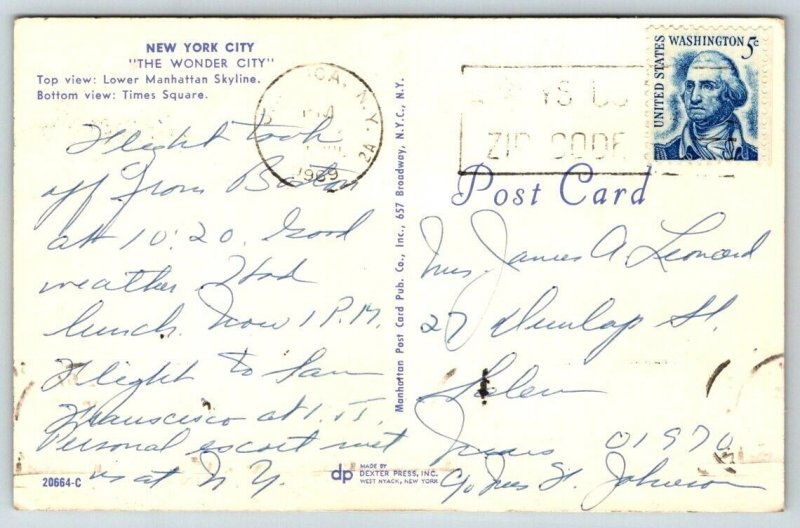 NEW YORK CITY
"THE WONDER CITY"
Top view: Lower Manhattan Skyline.
Bottom view: Times Square.
CA, N.Y.
PM
1969
2A
ZIP CODE
UNITED STATES
WASHINGTON 5¢
Post Card
Flight took
off from Boston
at 10:20. Good
weather. Had
lunch. Now 1 P.M.
Flight to San
Francisco at 1.
Personal escort met
us at N.Y.
Mrs James A Leonard
27 Dunlap St.
Salem
01970
c/o Mrs H. Johnson
Manhattan Post Card Pub. Co., Inc., 657 Broadway, N.Y.C., N.Y.
20664-C
dp
MADE BY
DEXTER PRESS, INC.
WEST NYACK, NEW YORK